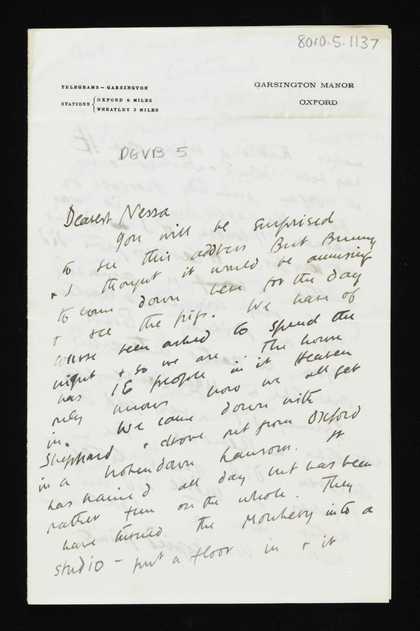 8010.5.1137
TELEGRAMS—GARSINGTON
STATIONS { OXFORD 6 MILES
WHEATLEY 3 MILES
GARSINGTON MANOR
OXFORD
DGVB 5
Dearest Nessa
You will be surprised
to see this address But Bunny
& I thought it would be amusing
to come down here for the day
& see the pigs. We have of
course been asked to spend the
night & so we are. The house
has 16 people in it Heaven
only knows how we all get
in. We came down with
Sheppard & drove out from Oxford
in a broken down hansom. It
has rained all day but has been
rather fun on the whole. They
have turned the Monkery into a
studio – put a floor in & it